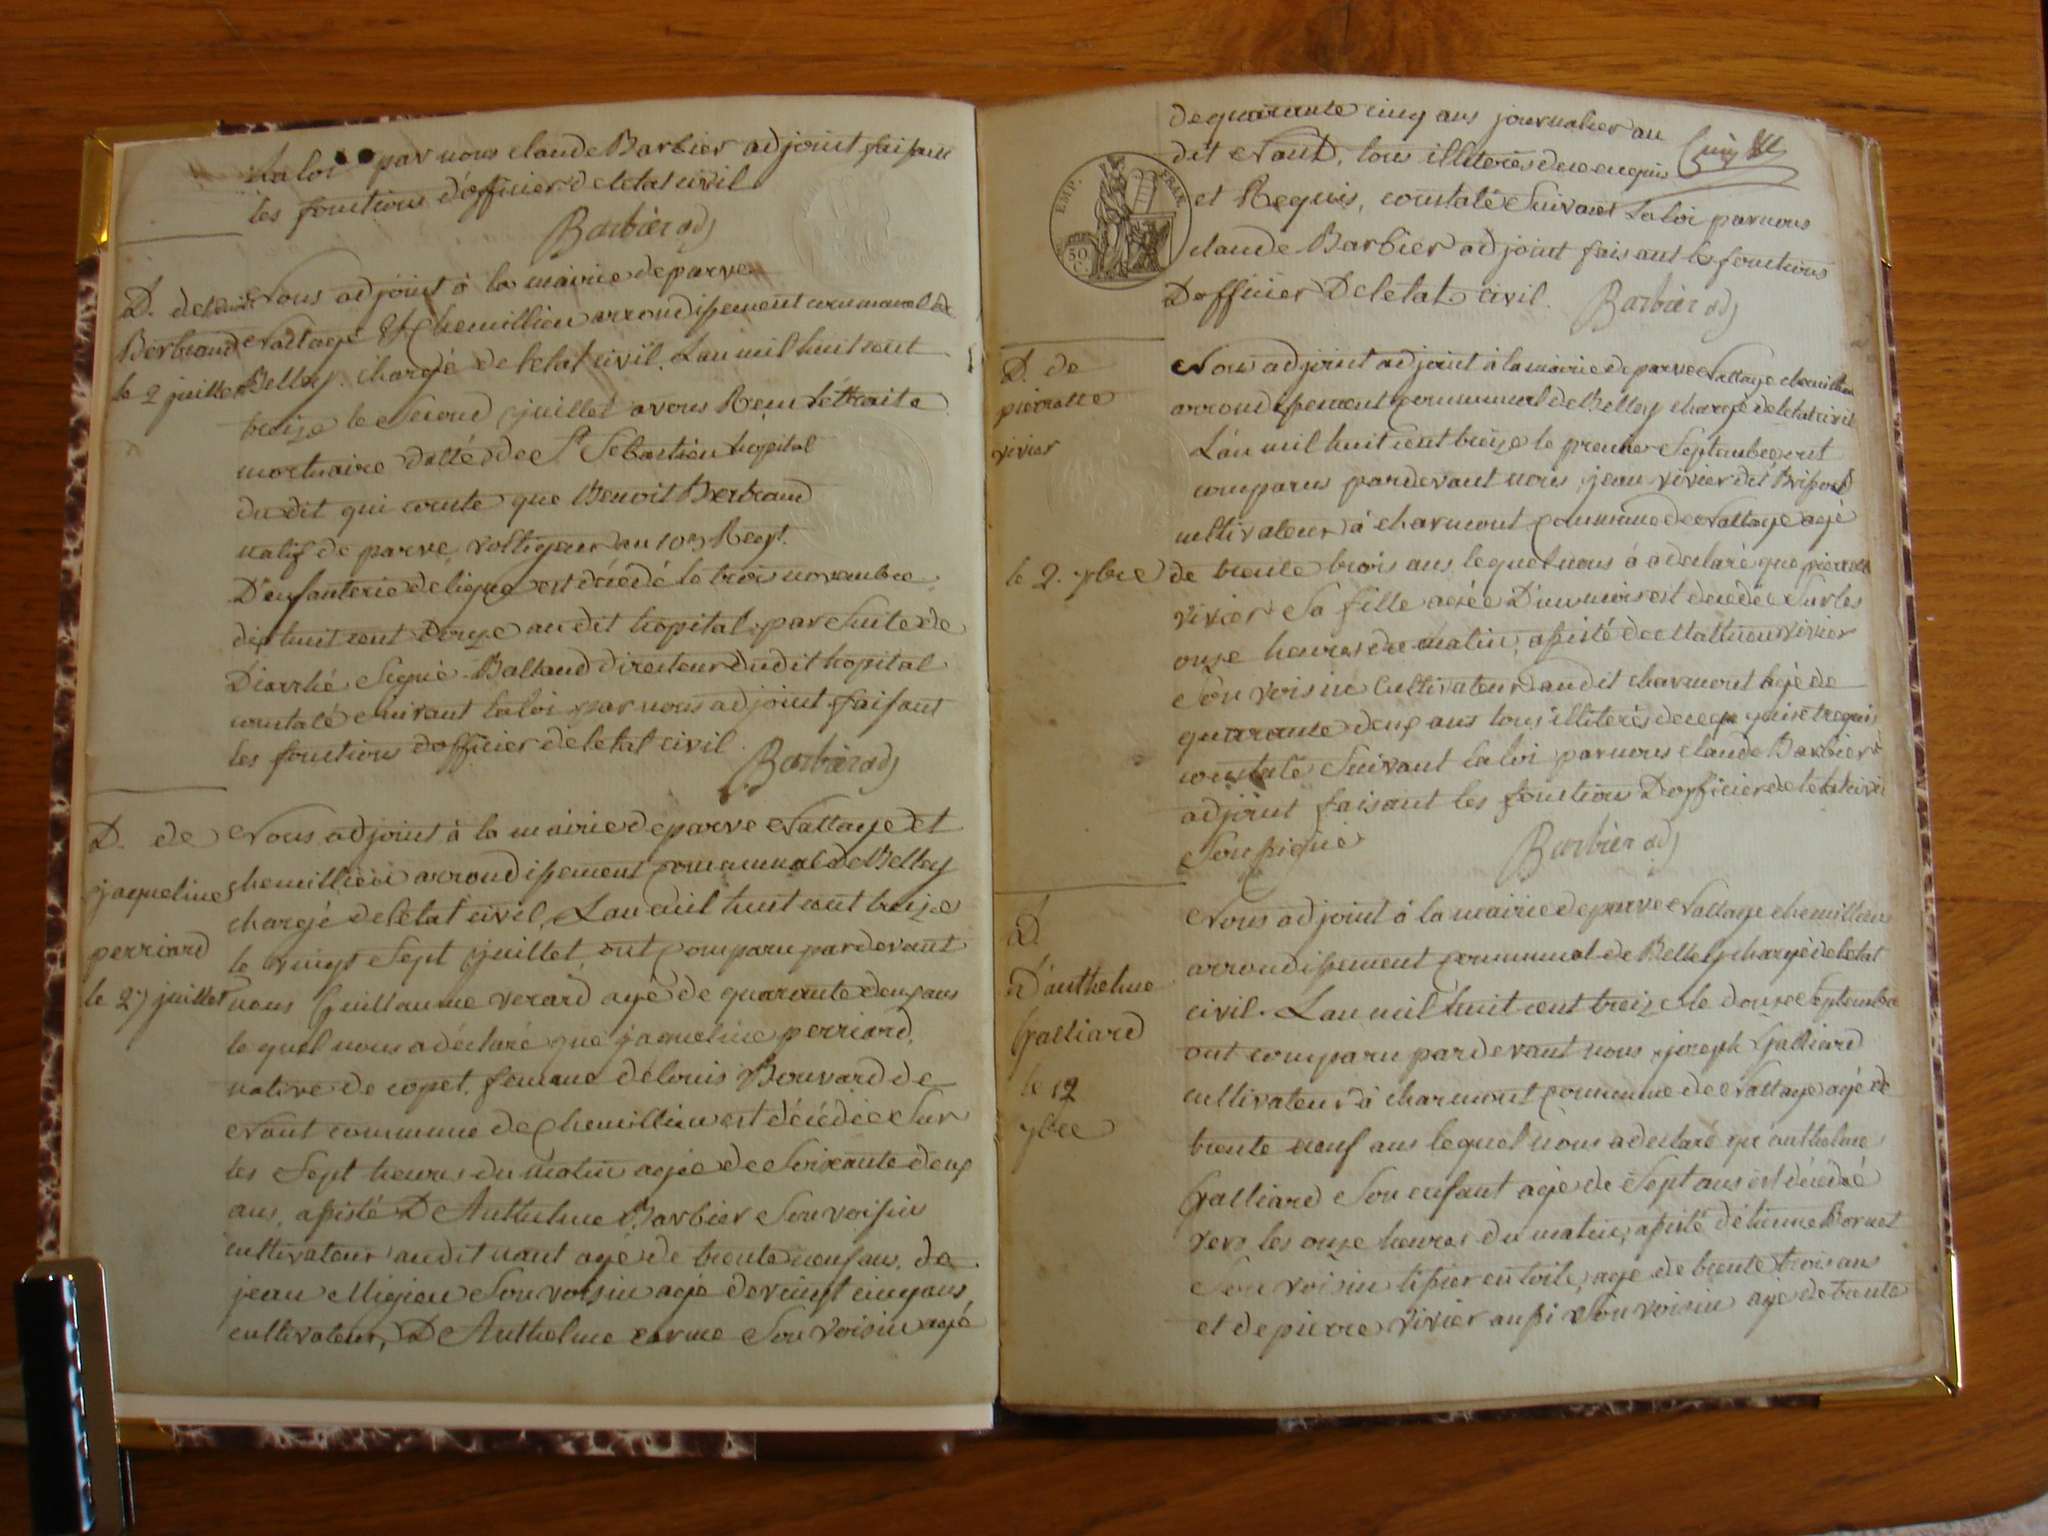 La loi par nous claude Barbier adjoint faisant
les fonctions d'officier de letat civil
Barbier adj
D. de benoit
Bertrand
le 2 juillet
Nous adjoint à la mairie de parve
Nattage & Chemillieu arrondissement communal de
Belley. chargé de letat civil. Lan mil huit cent
treize le second juillet avons Reçu léttrait
mortuaire datté de St Sebastien hopital
du dit qui conste que Benoit Bertrand
natif de parve voltigeur au Regt.
D'enfanterie de ligne est décédé le trois novembre
dix huit cent douze au dit hopital par Suite de
Diarrhé Signé Baltand directeur du dit hopital
constaté suivant la loi par nous adjoint faisant
les fonctions dofficier de letat civil.
Barbier adj
D. de
jaqueline
perriard
le 27 juillet
Nous adjoint à la mairie de parve Nattage et
chemillieu arrondissement communal de Belley
chargé de letat civil, Lan mil huit cent treize
le vingt Sept juillet ont comparu pardevant
nous Guillaume verard agé de quarante deux ans
lequel nous a déclaré que jaqueline perriard,
native de copet, femme de louis Bouvard de
Nant commune de Chemillieu est décédée Sur
les Sept heures du matin agée de Soixante deux
ans, assisté D'Anthelme Barbier Son voisin
cultivateur au dit nant agé de trente neuf ans, de
jean Migieu Son voisin agé de vingt cinq ans
cultivateur, D'Anthelme carme Son voisin agé
de quarante cinq ans journalier au
dit Nant, tous illiterés de ce enquis
et Requis, constaté Suivant La loi par nous
claude Barbier adjoint faisant les fonctions
D'officier De letat civil. Barbier adj
Cinq
EMP. FRAN.
50
C.
D. de
pierrette
vivier
le 2. 7bre
Nous adjoint adjoint à la mairie de parve Nattage chemillieu
arrondissement communal de Belley chargé de letat civil
L'an mil huit cent treize le premier Septembre ont
comparus pardevant nous, jean vivier dit
cultivateur à charmont commune de Nattage agé
de trente trois ans lequel nous à a declaré que pierrette
vivier Sa fille agée D'un mois est décédée Sur les
onze heures du matin, assisté de Mathieu vivier
Son voisin Cultivateur au dit charmont agé de
quarante deux ans tous illiterés de ce enquis et requis
constaté Suivant la loi par nous claude Barbier
adjoint faisant les fonctions D'officier de letat civil
Soussigné
Barbier adj
D.
D'anthelme
Galliard
le 12
7bre
Nous adjoint à la mairie de parve Nattage chemillieu
arrondissement communal de Belley chargé de letat
civil. Lan mil huit cent treize le douze Septembre
ont comparu pardevant nous joseph Galliard
cultivateur à charmont commune de Nattage agé de
trente neuf ans lequel nous a declaré qu'anthelme
Galliard Son enfant agé de Sept ans est décédé
vers les onze heures du matin, assisté d'étienne Bornet
Son voisin tissier en toile, agé de trente trois ans
et de pierre vivier aussi Son voisin agé de trente